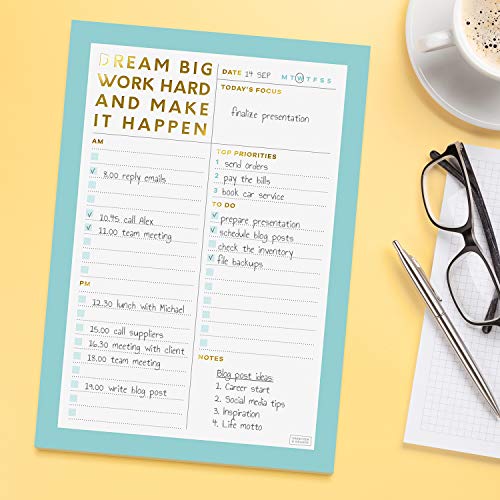 DREAM BIG
WORK HARD
AND MAKE
IT HAPPEN
DATE 14 SEP M T W T F S S
TODAY'S FOCUS
finalize presentation
AM
8.00 reply emails
10.45 call Alex
11.00 team meeting
PM
12.30 lunch with Michael
15.00 call suppliers
16.30 meeting with client
18.00 team meeting
19.00 write blog post
TOP PRIORITIES
1 send orders
2 pay the bills
3 book car service
TO DO
prepare presentation
schedule blog posts
check the inventory
file backups
NOTES
Blog post ideas:
1. Career start
2. Social media tips
3. Inspiration
4. Life motto